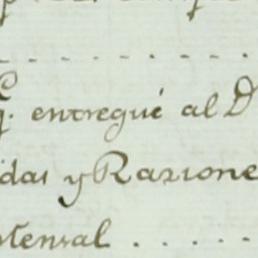 q. entregué al D
das y Razione
stensal